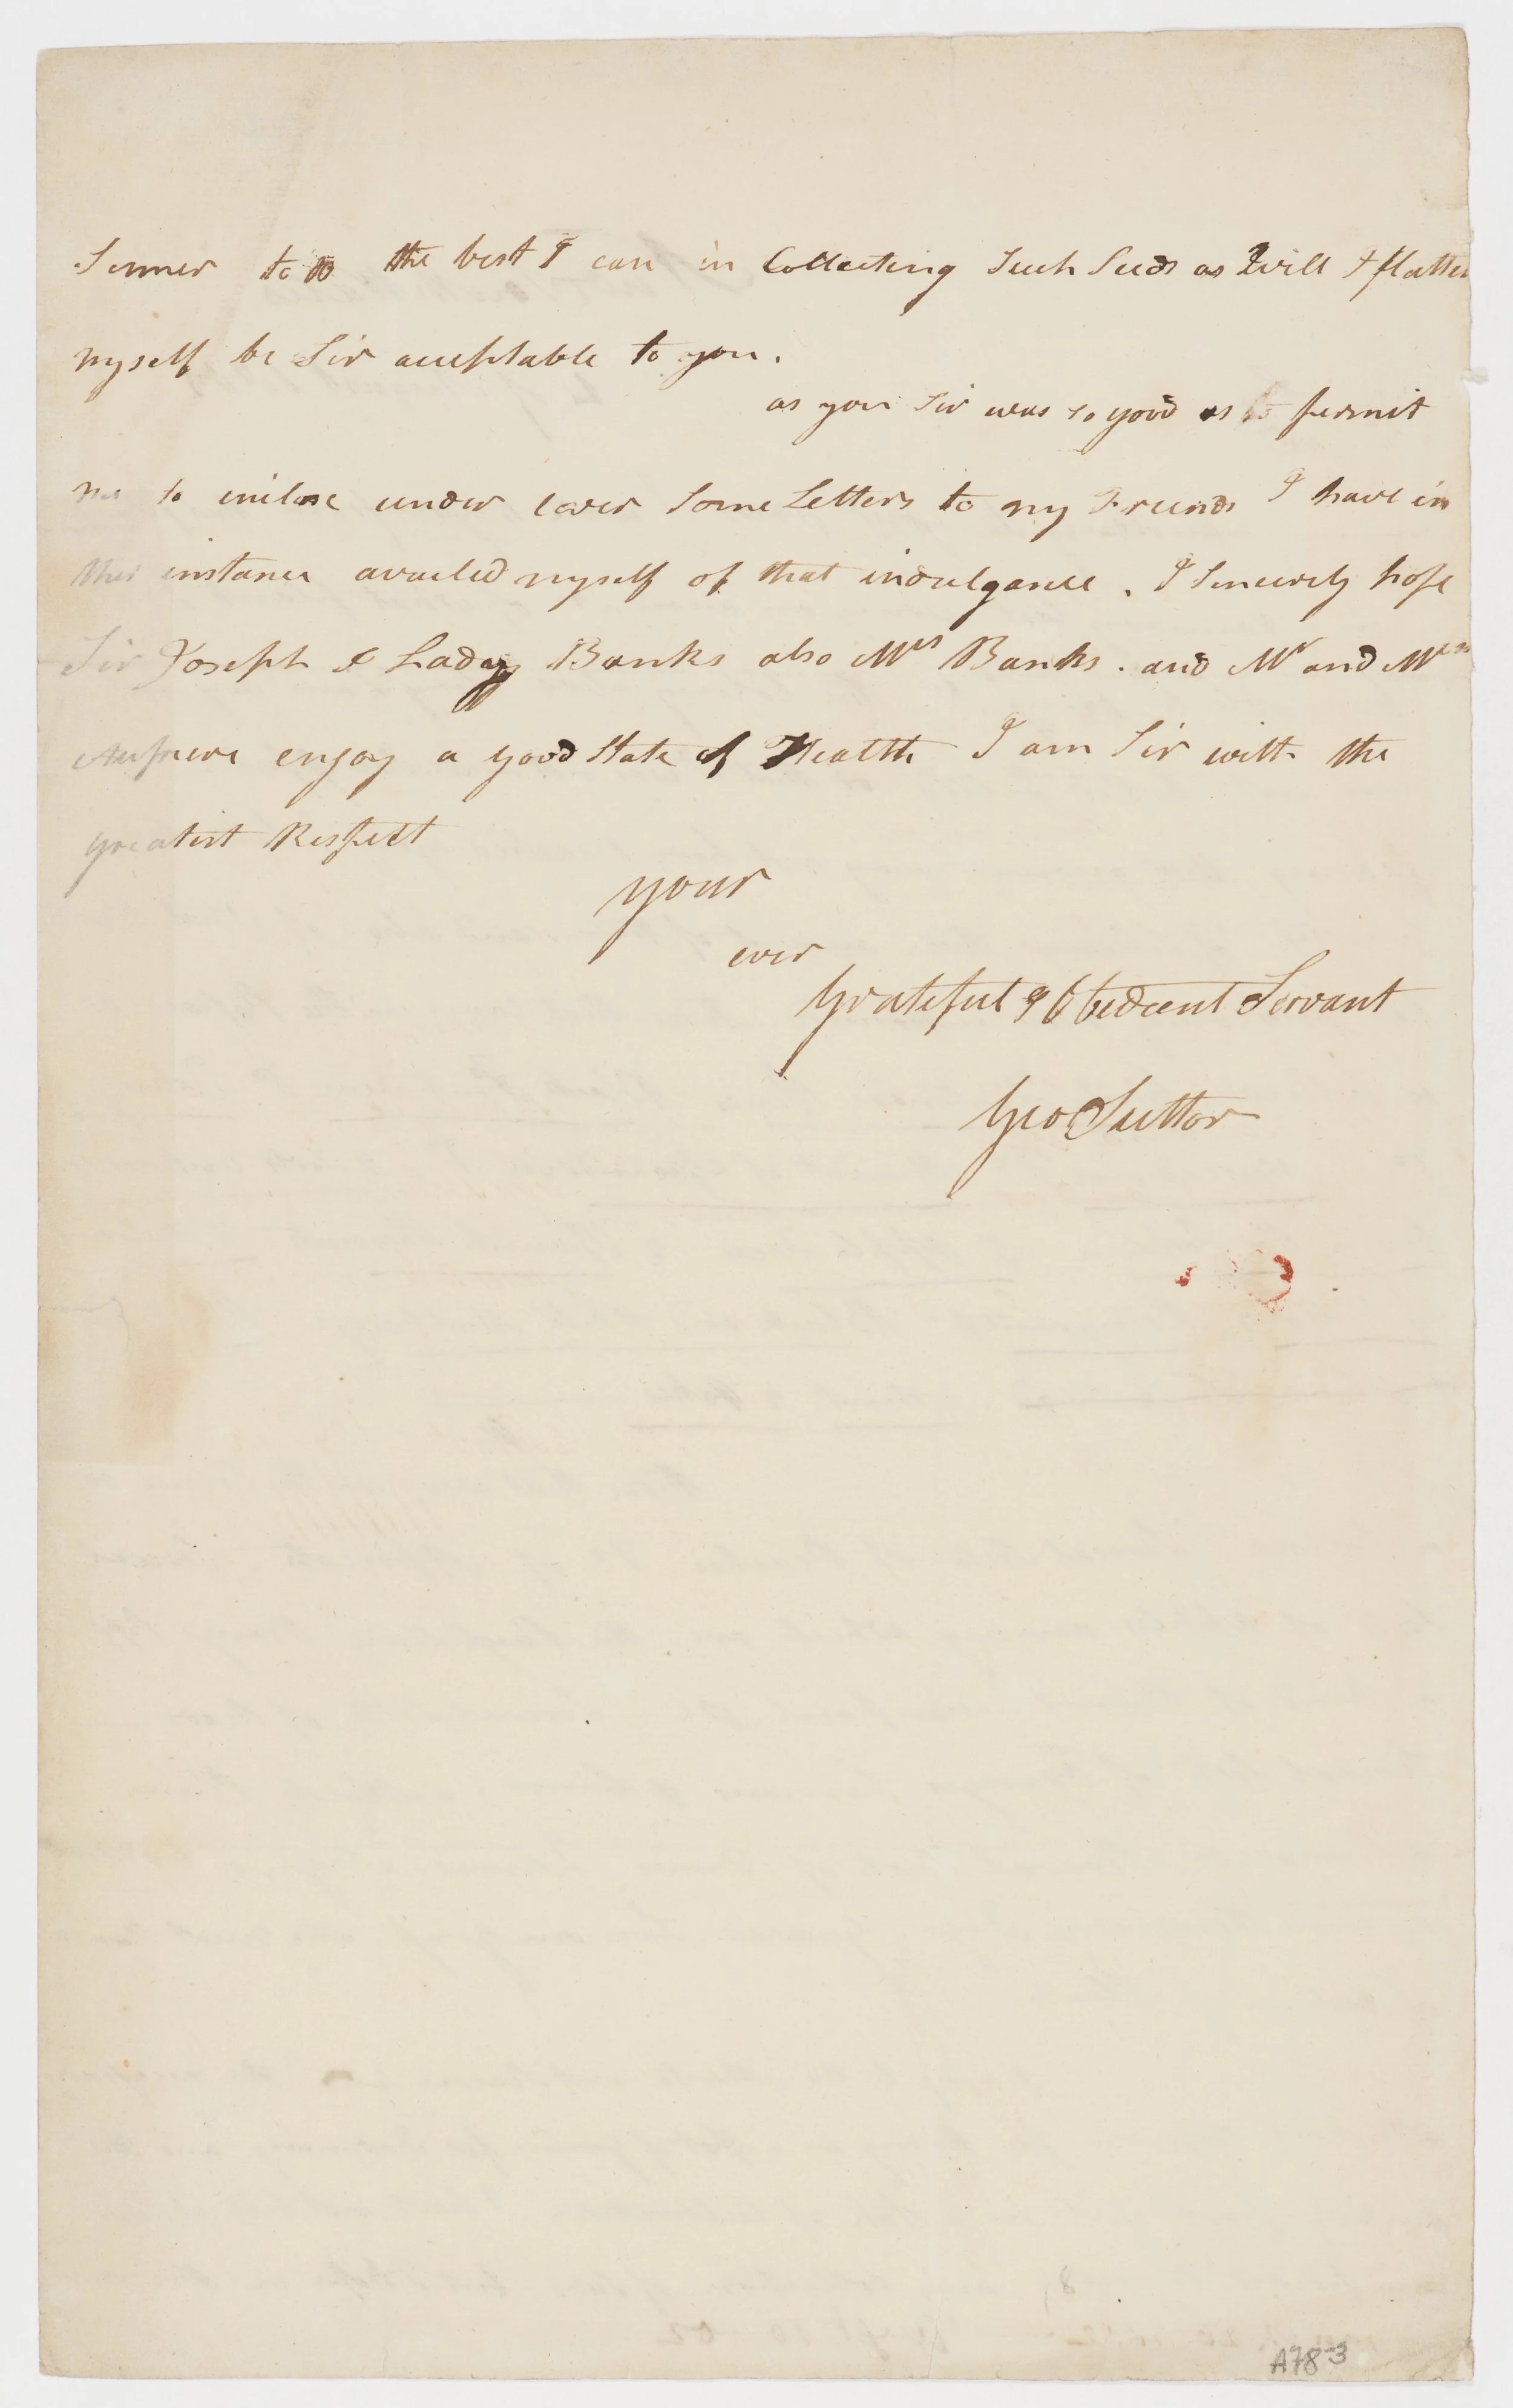 Sumer to do the best I can in Collecting Such Seeds as Will I flatter
myself be Sir acceptable to you.
as you Sir was so good as to permit
me to inclose under cover Some Letters to my Friends I have in
this instance availed myself of that indulgance. I Sincerely hope
Sir Joseph & Lady Banks also Mrs Banks. and Mr and Mrs
enjoy a good State of Health I am Sir with the
greatest Respect
your
ever
Grateful & Obedient Servant
Geo Suttor
A78-3